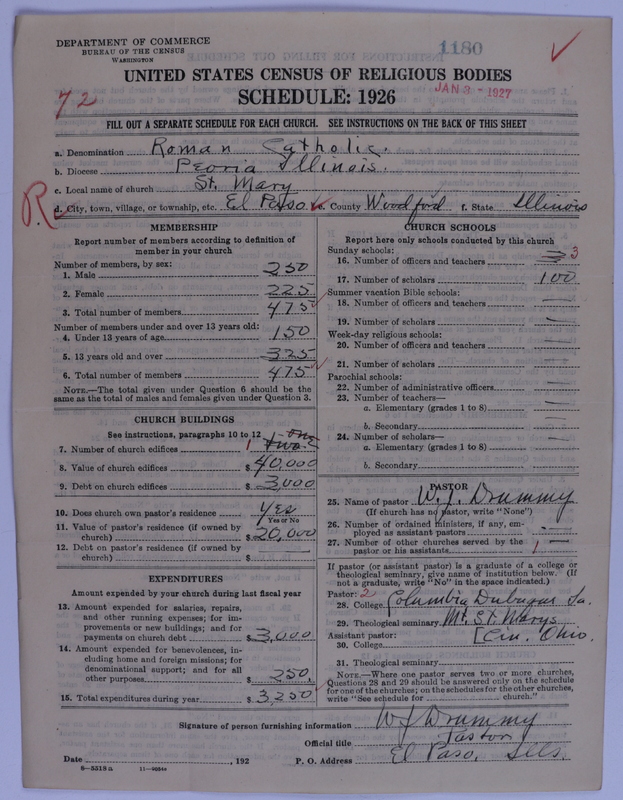 DEPARTMENT OF COMMERCE
BUREAU OF THE CENSUS
WASHINGTON
1180
UNITED STATES CENSUS OF RELIGIOUS BODIES
JAN 3 - 1927
72
SCHEDULE: 1926
FILL OUT A SEPARATE SCHEDULE FOR EACH CHURCH. SEE INSTRUCTIONS ON THE BACK OF THIS SHEET
a. Denomination Roman Catholic.
b. Diocese Peoria Illinois.
c. Local name of church St. Mary
R
d. City, town, village, or township, etc. El Paso. e. County Woodford f. State Illinois
MEMBERSHIP
Report number of members according to definition of
member in your church
Number of members, by sex:
1. Male 250
2. Female 225
3. Total number of members 475
Number of members under and over 13 years old:
4. Under 13 years of age 150
5. 13 years old and over 325
6. Total number of members 475
NOTE.—The total given under Question 6 should be the
same as the total of males and females given under Question 3.
CHURCH BUILDINGS
See instructions, paragraphs 10 to 12
7. Number of church edifices 1 two one
8. Value of church edifices $40,000
9. Debt on church edifices $3,000
10. Does church own pastor's residence? Yes
Yes or No
11. Value of pastor's residence (if owned by
church) $20,000
12. Debt on pastor's residence (if owned by
church) $ —
EXPENDITURES
Amount expended by your church during last fiscal year
13. Amount expended for salaries, repairs,
and other running expenses; for im-
provements or new buildings; and for
payments on church debt $3,000
14. Amount expended for benevolences, in-
cluding home and foreign missions; for
denominational support; and for all
other purposes $250.
15. Total expenditures during year $3,250
CHURCH SCHOOLS
Report here only schools conducted by this church
Sunday schools:
16. Number of officers and teachers 3
17. Number of scholars 100
Summer vacation Bible schools:
18. Number of officers and teachers —
19. Number of scholars —
Week-day religious schools:
20. Number of officers and teachers —
21. Number of scholars —
Parochial schools:
22. Number of administrative officers —
23. Number of teachers—
a. Elementary (grades 1 to 8) —
b. Secondary —
24. Number of scholars—
a. Elementary (grades 1 to 8) —
b. Secondary —
PASTOR
25. Name of pastor W. J. Drummy
(If church has no pastor, write "None")
26. Number of ordained ministers, if any, em-
ployed as assistant pastors —
27. Number of other churches served by the
pastor or his assistants 1 —
If pastor (or assistant pastor) is a graduate of a college or
theological seminary, give name of institution below. (If
not a graduate, write "No" in the space indicated.)
Pastor: 2
28. College Columbia Dubuque Ia.
29. Theological seminary Mt. St. Marys
Assistant pastor: [Cin. Ohio.
30. College
31. Theological seminary
NOTE.—Where one pastor serves two or more churches,
Questions 28 and 29 should be answered only on the schedule
for one of the churches; on the schedules for the other churches,
write "See schedule for church."
Signature of person furnishing information W J Drummy
Official title Pastor
Date , 192 P. O. Address El Paso, Ills.
6—5518a 11—9034a